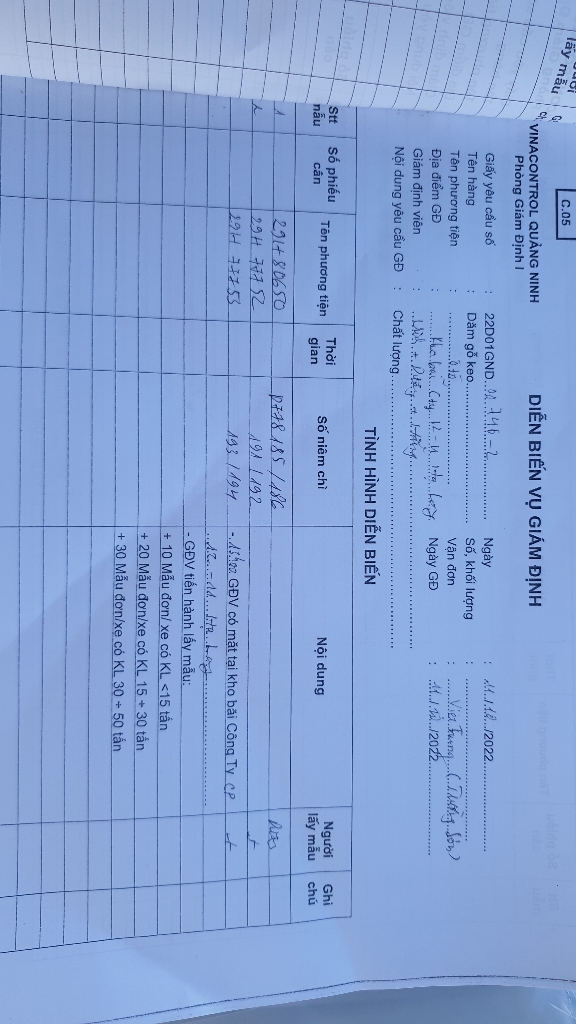 lấy mẫu
C.05
VINACONTROL QUẢNG NINH
Phòng Giám Định I
DIỄN BIẾN VỤ GIÁM ĐỊNH
Giấy yêu cầu số : 22D01GND Ngày : 11/12/2022
Tên hàng : Dăm gỗ keo Số, khối lượng :
Tên phương tiện : Ô tô Vận đơn : Việt Trung (Trường Sơn)
Địa điểm GĐ : Kho bãi Cty Ngày GĐ : 11/12/2022
Giám định viên :
Nội dung yêu cầu GĐ : Chất lượng
TÌNH HÌNH DIỄN BIẾN
Stt mẫu Số phiếu cân Tên phương tiện Thời gian Số niêm chì Nội dung Người lấy mẫu Ghi chú
1 29H 80650 0778185/186
2 29H 77752 191/192
29H 77753 193/194 - 13h00 GĐV có mặt tại kho bãi Công Ty CP
- GĐV tiến hành lấy mẫu:
+ 10 Mẫu đơn/ xe có KL <15 tấn
+ 20 Mẫu đơn/xe có KL 15 ÷ 30 tấn
+ 30 Mẫu đơn/xe có KL 30 ÷ 50 tấn